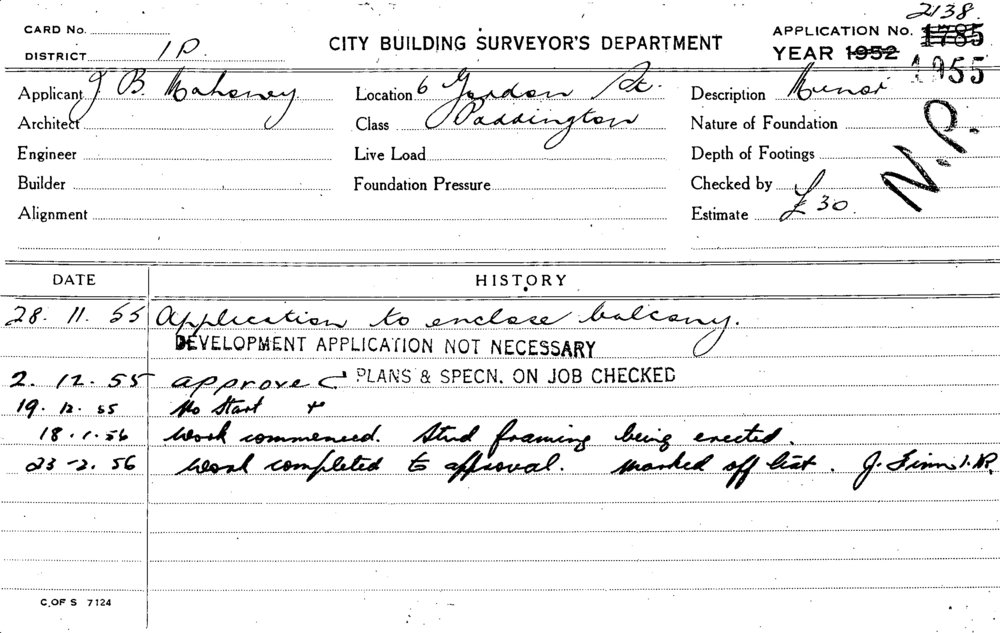 2138
CARD No. APPLICATION No. 1785
DISTRICT 1P. CITY BUILDING SURVEYOR'S DEPARTMENT YEAR 1952
1955
Applicant J B. Mahoney Location 6 Gordon St. Description Minor
Architect Class Paddington Nature of Foundation
Engineer Live Load Depth of Footings
N.P.
Builder Foundation Pressure Checked by
Alignment Estimate £30.
DATE HISTORY
28. 11. 55 Application to enclose balcony.
DEVELOPMENT APPLICATION NOT NECESSARY
2. 12. 55 approved PLANS & SPECN. ON JOB CHECKED
19. 12. 55 No Start
18. 1. 56 Work commenced. Stud framing being erected.
23-2. 56 Work completed to approval. Marked off list. J. Finn 1.NP.
C.OF S 7124